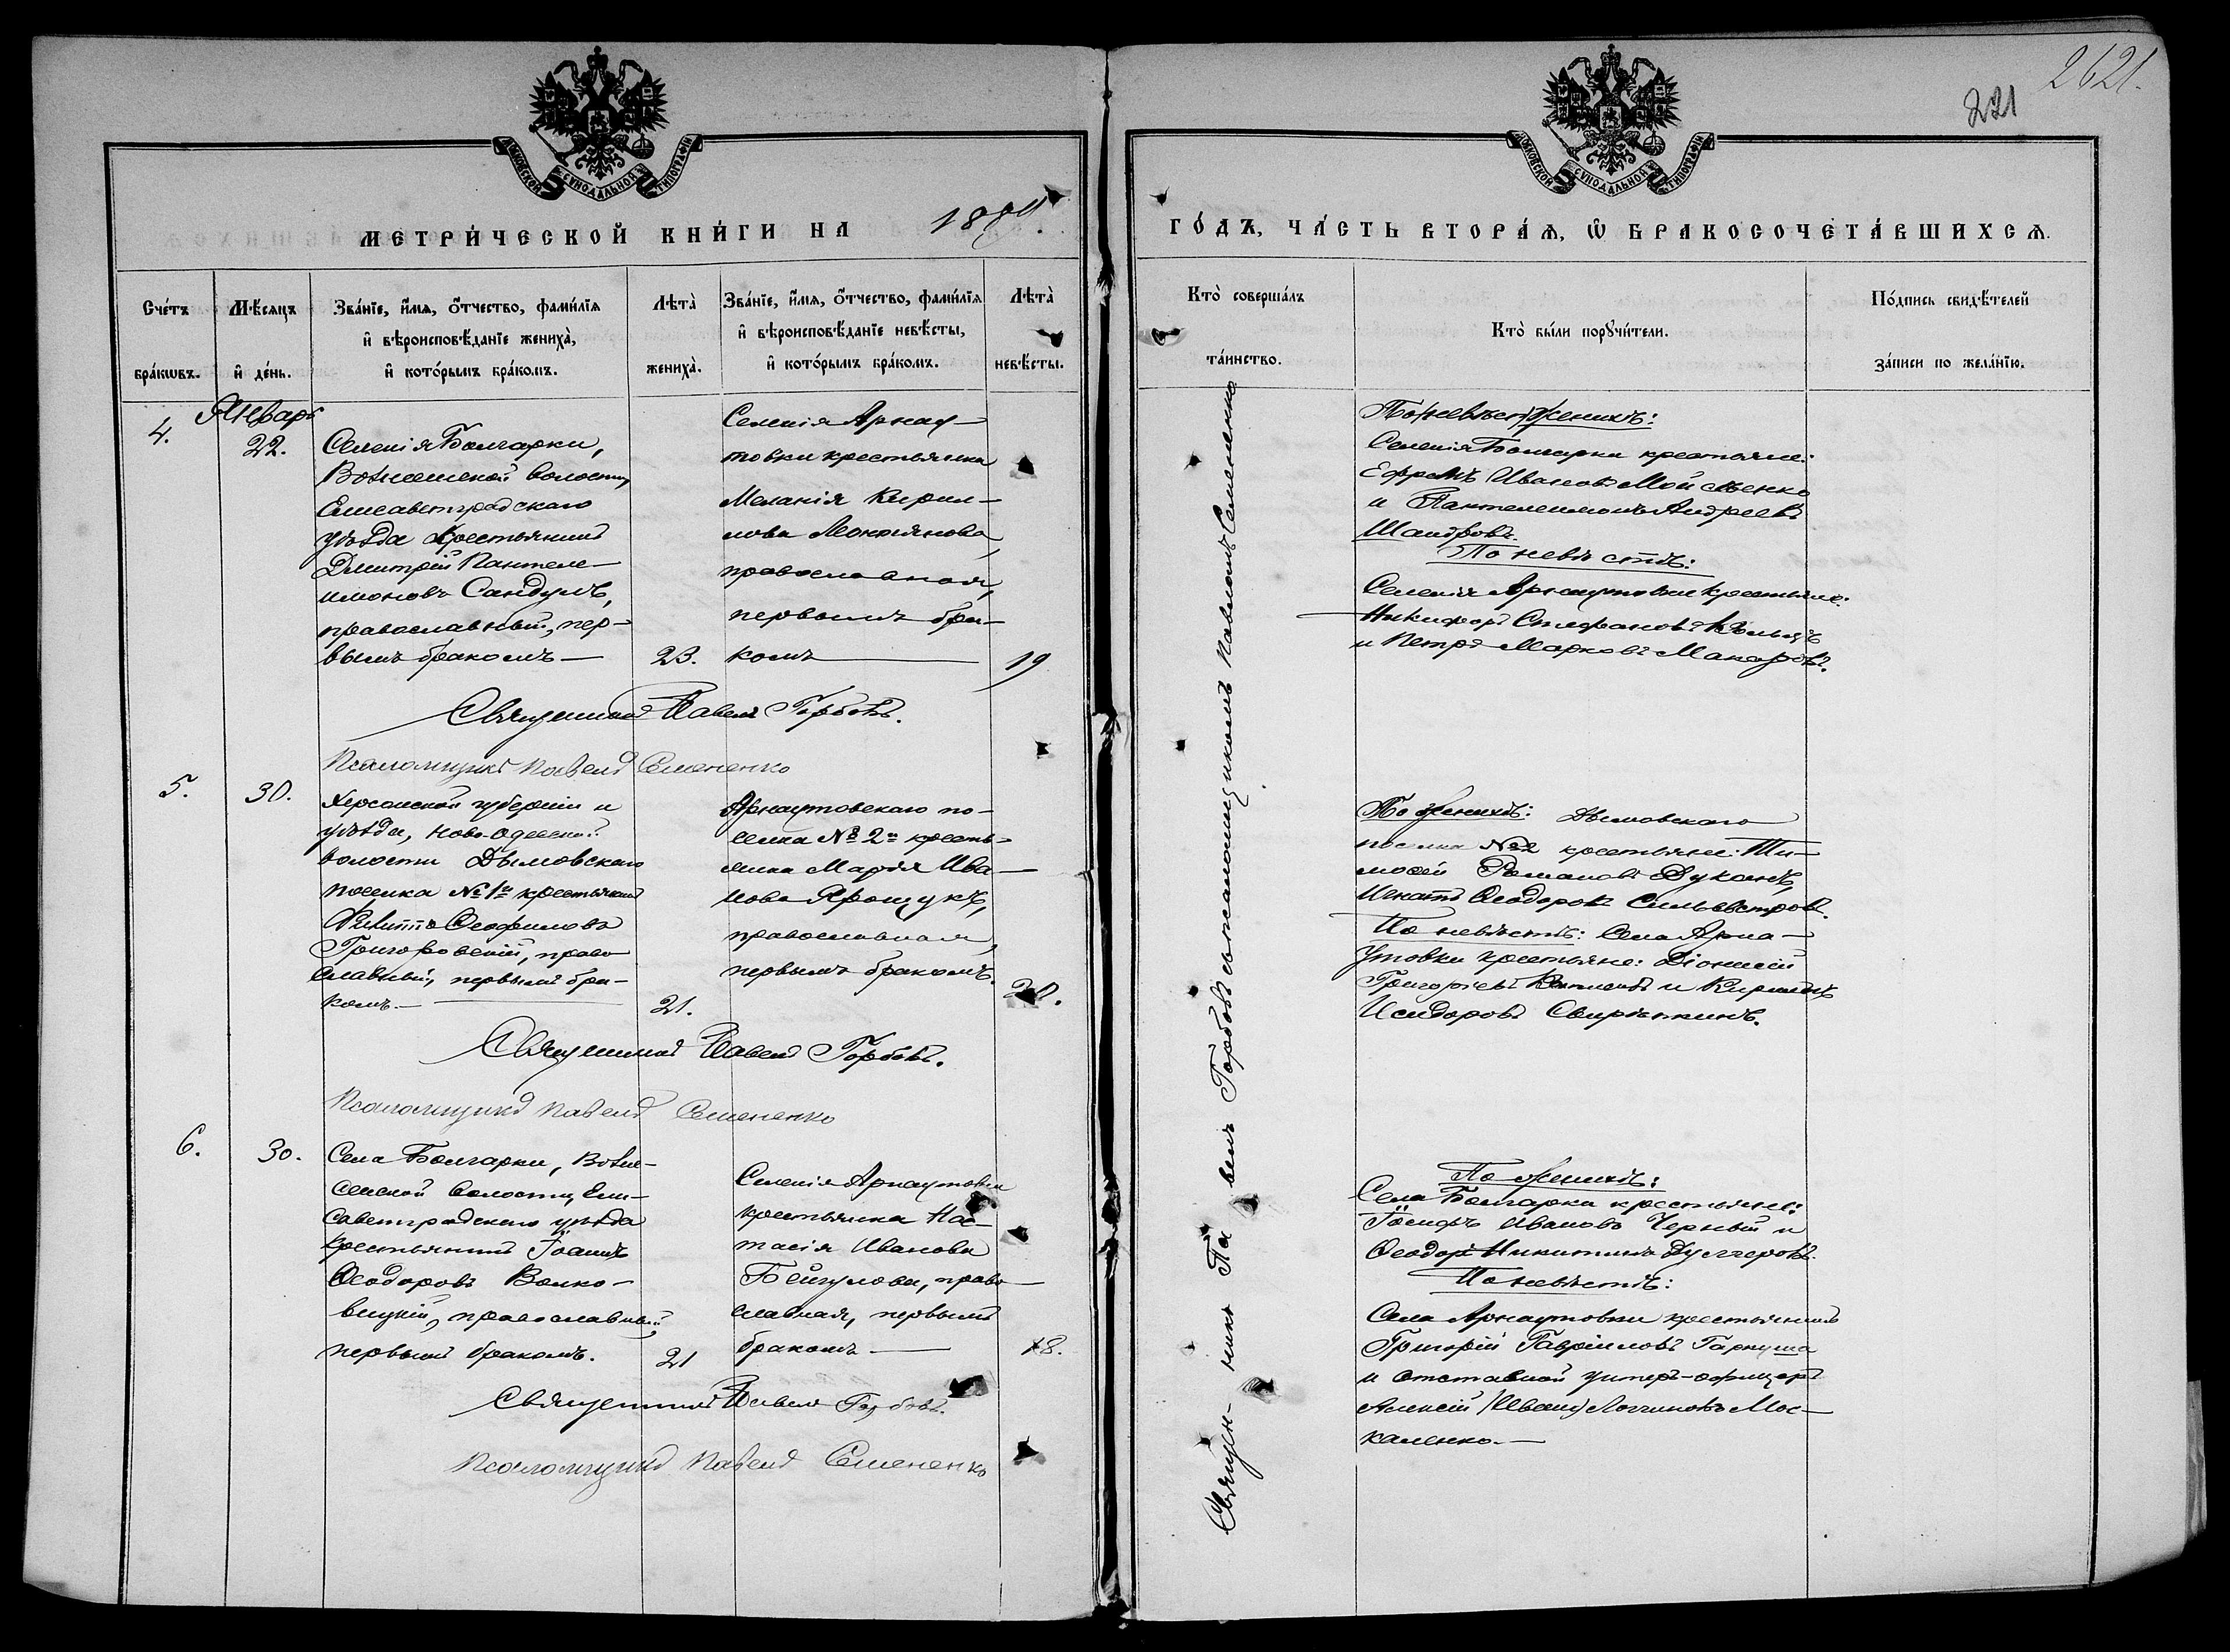 2621.
221
МОСКОВСКОЙ СѴНОДАЛЬНОЙ ТИПОГРАФІИ
МОСКОВСКОЙ СѴНОДАЛЬНОЙ ТИПОГРАФІИ
МЕТРИ́ЧЕСКОЙ КНИ́ГИ НА 1884.
ГО́ДЪ, ЧА́СТЬ ВТОРА́Ѧ, Ѽ БРАКОСОЧЕТА́ВШИХСѦ.
Сче́тъ
бра́кѡвъ.
Мѣ́сѧцъ
и҆ де́нь.
Зва́нїе, и҆́мѧ, ѻ҆́тчество, фами́лїѧ
и҆ вѣроисповѣ́данїе жениха̀,
и҆ кото́рымъ бра́комъ.
Лѣта̀
жениха̀.
Зва́нїе, и҆́мѧ, ѻ҆́тчество, фами́лїѧ
и҆ вѣроисповѣ́данїе невѣ́сты,
и҆ кото́рымъ бра́комъ.
Лѣта̀
невѣ́сты.
Кто̀ соверша́лъ
та́инство.
Кто̀ бы́ли порꙋчи́тели.
По́дпись свидѣ́телей
за́писи по жела́нїю.
Январь
4.
22.
Селенія Болгарки,
Вознесенской волости,
Елисаветградскаго
уѣзда крестьянинъ
Дмитрій Пантеле-
имоновъ Сандулъ,
православный, пер-
вымъ бракомъ —
23.
Селенія Арнау-
товки крестьянка
Меланія Кирил-
лова Леонтянова,
православная,
первымъ бра-
комъ —
19
По женихѣ:
Селенія Болгарки крестьяне:
Ефремъ Ивановъ Мойсѣенко
и Пантелеимонъ Андреевъ
Шандровъ.
По невѣстѣ:
Селенія Арнаутовки крестьяне:
Никифоръ Стефановъ
и Петръ Марковъ Макаровъ.
Священникъ Павелъ Горбовъ.
Псаломщикъ Павелъ Семененко
5.
30.
Херсонской губерніи и
уѣзда, Ново-Одесской
волости Дымовскаго
поселка № 1й крестьянинъ
Филиппъ Феофиловъ
Григоровскій, право
славный, первымъ бра-
комъ. —
21.
Арнаутовскаго по-
селка № 2й кресть-
янка Марія Ива-
нова Ярощукъ,
православная,
первымъ бракомъ.
20.
По женихѣ: Дымовскаго
поселка № 2 крестьяне: Ти-
мофей Романовъ Дуканъ,
Игнатъ Ѳеодоровъ Сильвестровъ.
По невѣстѣ: Села Арна-
утовки крестьяне: Діонисій
Григорьевъ и Кириллъ
Исидоровъ Свирѣпкинъ.
Священникъ Павелъ Горбовъ.
Псаломщикъ Павелъ Семененко
6.
30.
Села Болгарки, Возне-
сенской волости, Ели-
саветградскаго уѣзда
крестьянинъ Іоаннъ
Ѳеодоровъ Волко-
вицкій, православный,
первымъ бракомъ.
21
Селенія Арнаутовки
крестьянка Нас-
тасія Иванова
Бейгулова, право
славная, первымъ
бракомъ —
18.
По женихѣ:
Села Болгарки крестьяне:
Іосифъ Ивановъ Черный и
Ѳеодоръ Никитинъ Дулгеровъ.
По невѣстѣ:
Села Арнаутовки крестьянинъ
Григорій Гавріиловъ Гаркуша
и отставной унтеръ-офицеръ
Алексій (Иванъ) Логгиновъ Мос-
каленко. —
Священникъ Павелъ Горбовъ.
Псаломщикъ Павелъ Семененко
Священ- никъ Па велъ Горбовъ съ псаломщикомъ Павломъ Семененко